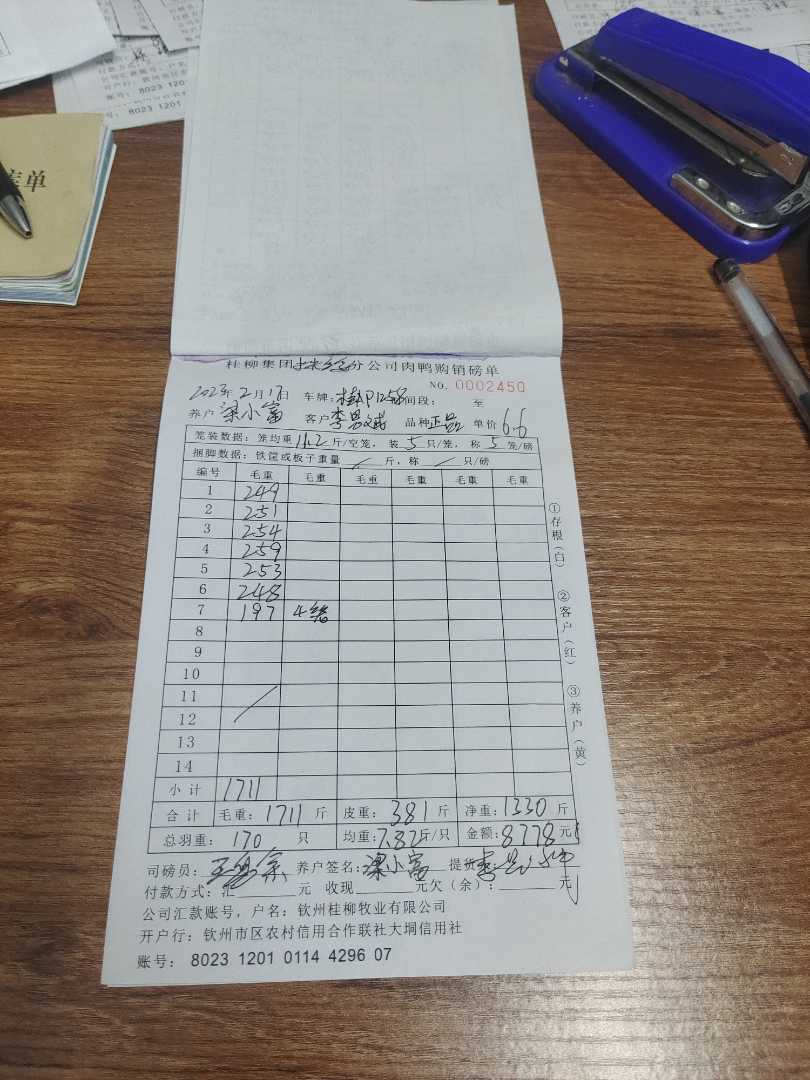 账号: 8023 1201
库单
桂柳集团 分公司肉鸭购销磅单
NO. 0002450
2023年2月17日 车牌: 桂 P1258 时间段: 至
养户 梁小富 客户 李 品种 正品 单价 6.6
笼装数据: 笼均重 11.2 斤/空笼, 装 5 只/笼, 称 5 笼/磅
捆脚数据: 铁筐或板子重量 / 斤, 称 / 只/磅
编号 毛重 毛重 毛重 毛重 毛重 毛重
1 249
2 251
3 254
4 259
5 253
6 248
7 197 4笼
8
9
10
11
12
13
14
小计 1711
合计 毛重: 1711 斤 皮重: 381 斤 净重: 1330 斤
总羽重: 170 只 均重: 7.82 斤/只 金额: 8778 元
①存根(白)
②客户(红)
③养户(黄)
司磅员: 养户签名: 梁小富 提货
付款方式: 汇 元 收现 元欠(余): 元
公司汇款账号, 户名: 钦州桂柳牧业有限公司
开户行: 钦州市区农村信用合作联社大垌信用社
账号: 8023 1201 0114 4296 07